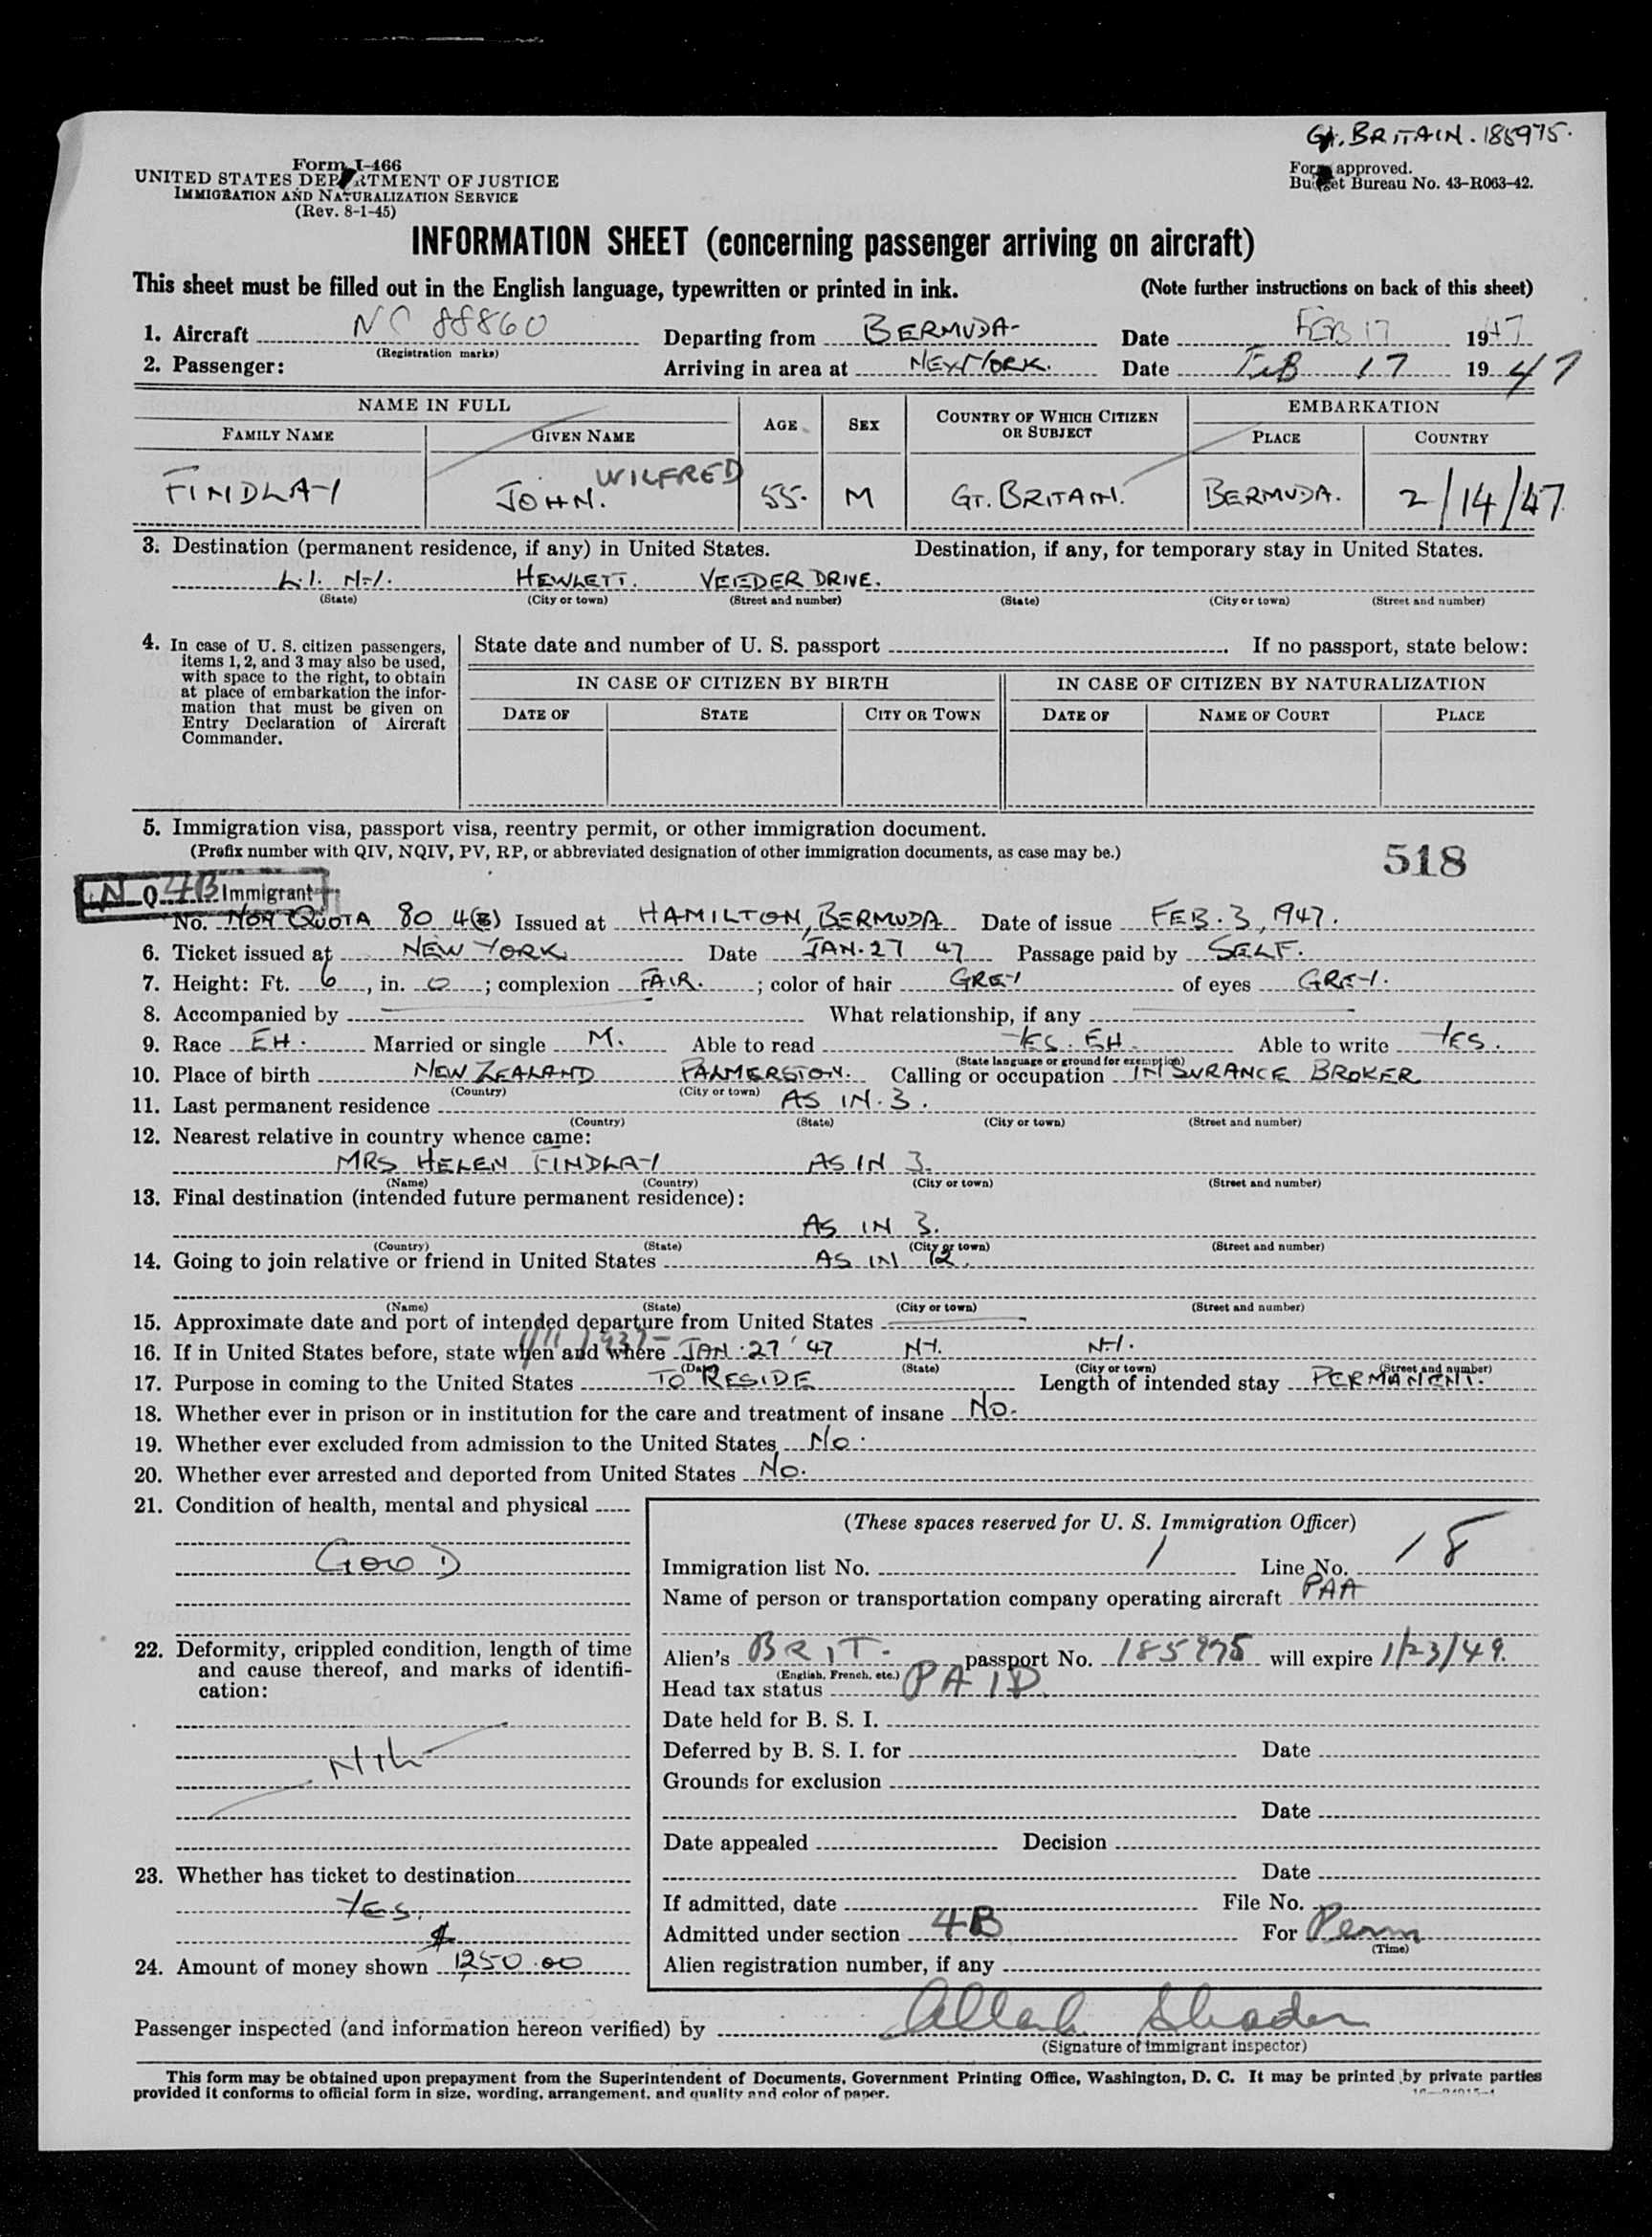 Gt. BRITAIN. 185975.
Form I-466
UNITED STATES DEPARTMENT OF JUSTICE
IMMIGRATION AND NATURALIZATION SERVICE
(Rev. 8-1-45)
Form approved.
Budget Bureau No. 43-R063-42.
INFORMATION SHEET (concerning passenger arriving on aircraft)
This sheet must be filled out in the English language, typewritten or printed in ink. (Note further instructions on back of this sheet)
1. Aircraft NC 88860 Departing from BERMUDA Date FEB 17 1947
(Registration marks)
2. Passenger: Arriving in area at NEW YORK. Date Feb 17 1947
NAME IN FULL AGE SEX COUNTRY OF WHICH CITIZEN OR SUBJECT EMBARKATION
FAMILY NAME GIVEN NAME PLACE COUNTRY
FINDLAY JOHN. WILFRED 55. M GT. BRITAIN. BERMUDA. 2/14/47
3. Destination (permanent residence, if any) in United States. Destination, if any, for temporary stay in United States.
L.I. N.Y. HEWLETT. VEEDER DRIVE.
(State) (City or town) (Street and number) (State) (City or town) (Street and number)
4. In case of U. S. citizen passengers, items 1, 2, and 3 may also be used, with space to the right, to obtain at place of embarkation the information that must be given on Entry Declaration of Aircraft Commander.
State date and number of U. S. passport If no passport, state below:
IN CASE OF CITIZEN BY BIRTH IN CASE OF CITIZEN BY NATURALIZATION
DATE OF STATE CITY OR TOWN DATE OF NAME OF COURT PLACE
5. Immigration visa, passport visa, reentry permit, or other immigration document.
(Prefix number with QIV, NQIV, PV, RP, or abbreviated designation of other immigration documents, as case may be.)
518
N Q 4B Immigrant
No. NON QUOTA 80 4(B) Issued at HAMILTON, BERMUDA Date of issue FEB. 3, 1947.
6. Ticket issued at NEW YORK. Date JAN. 27 47 Passage paid by SELF.
7. Height: Ft. 6, in. 0; complexion FAIR.; color of hair GREY of eyes GREY.
8. Accompanied by What relationship, if any
9. Race EH. Married or single M. Able to read YES. EH. Able to write YES.
(State language or ground for exemption)
10. Place of birth NEW ZEALAND PALMERSTON. Calling or occupation INSURANCE BROKER
(Country) (City or town)
11. Last permanent residence AS IN. 3.
(Country) (State) (City or town) (Street and number)
12. Nearest relative in country whence came:
MRS HELEN FINDLAY AS IN 3.
(Name) (Country) (City or town) (Street and number)
13. Final destination (intended future permanent residence):
AS IN 3.
(Country) (State) (City or town) (Street and number)
14. Going to join relative or friend in United States AS IN 12.
(Name) (State) (City or town) (Street and number)
15. Approximate date and port of intended departure from United States
16. If in United States before, state when and where JAN. 27 '47 N.Y. N.Y.
(Date) (State) (City or town) (Street and number)
17. Purpose in coming to the United States TO RESIDE Length of intended stay PERMANENT.
18. Whether ever in prison or in institution for the care and treatment of insane No.
19. Whether ever excluded from admission to the United States No.
20. Whether ever arrested and deported from United States No.
21. Condition of health, mental and physical
GOOD
22. Deformity, crippled condition, length of time and cause thereof, and marks of identification:
NIL
23. Whether has ticket to destination
YES.
24. Amount of money shown $1250.00
(These spaces reserved for U. S. Immigration Officer)
Immigration list No. 1 Line No. 18
Name of person or transportation company operating aircraft PAA
Alien's BRIT. passport No. 185975 will expire 1/23/49.
(English, French, etc.)
Head tax status PAID
Date held for B. S. I.
Deferred by B. S. I. for Date
Grounds for exclusion
Date
Date appealed Decision
Date
If admitted, date File No.
Admitted under section 4B For Perm
(Time)
Alien registration number, if any
Passenger inspected (and information hereon verified) by
(Signature of immigrant inspector)
This form may be obtained upon prepayment from the Superintendent of Documents, Government Printing Office, Washington, D. C. It may be printed by private parties
provided it conforms to official form in size, wording, arrangement, and quality and color of paper.